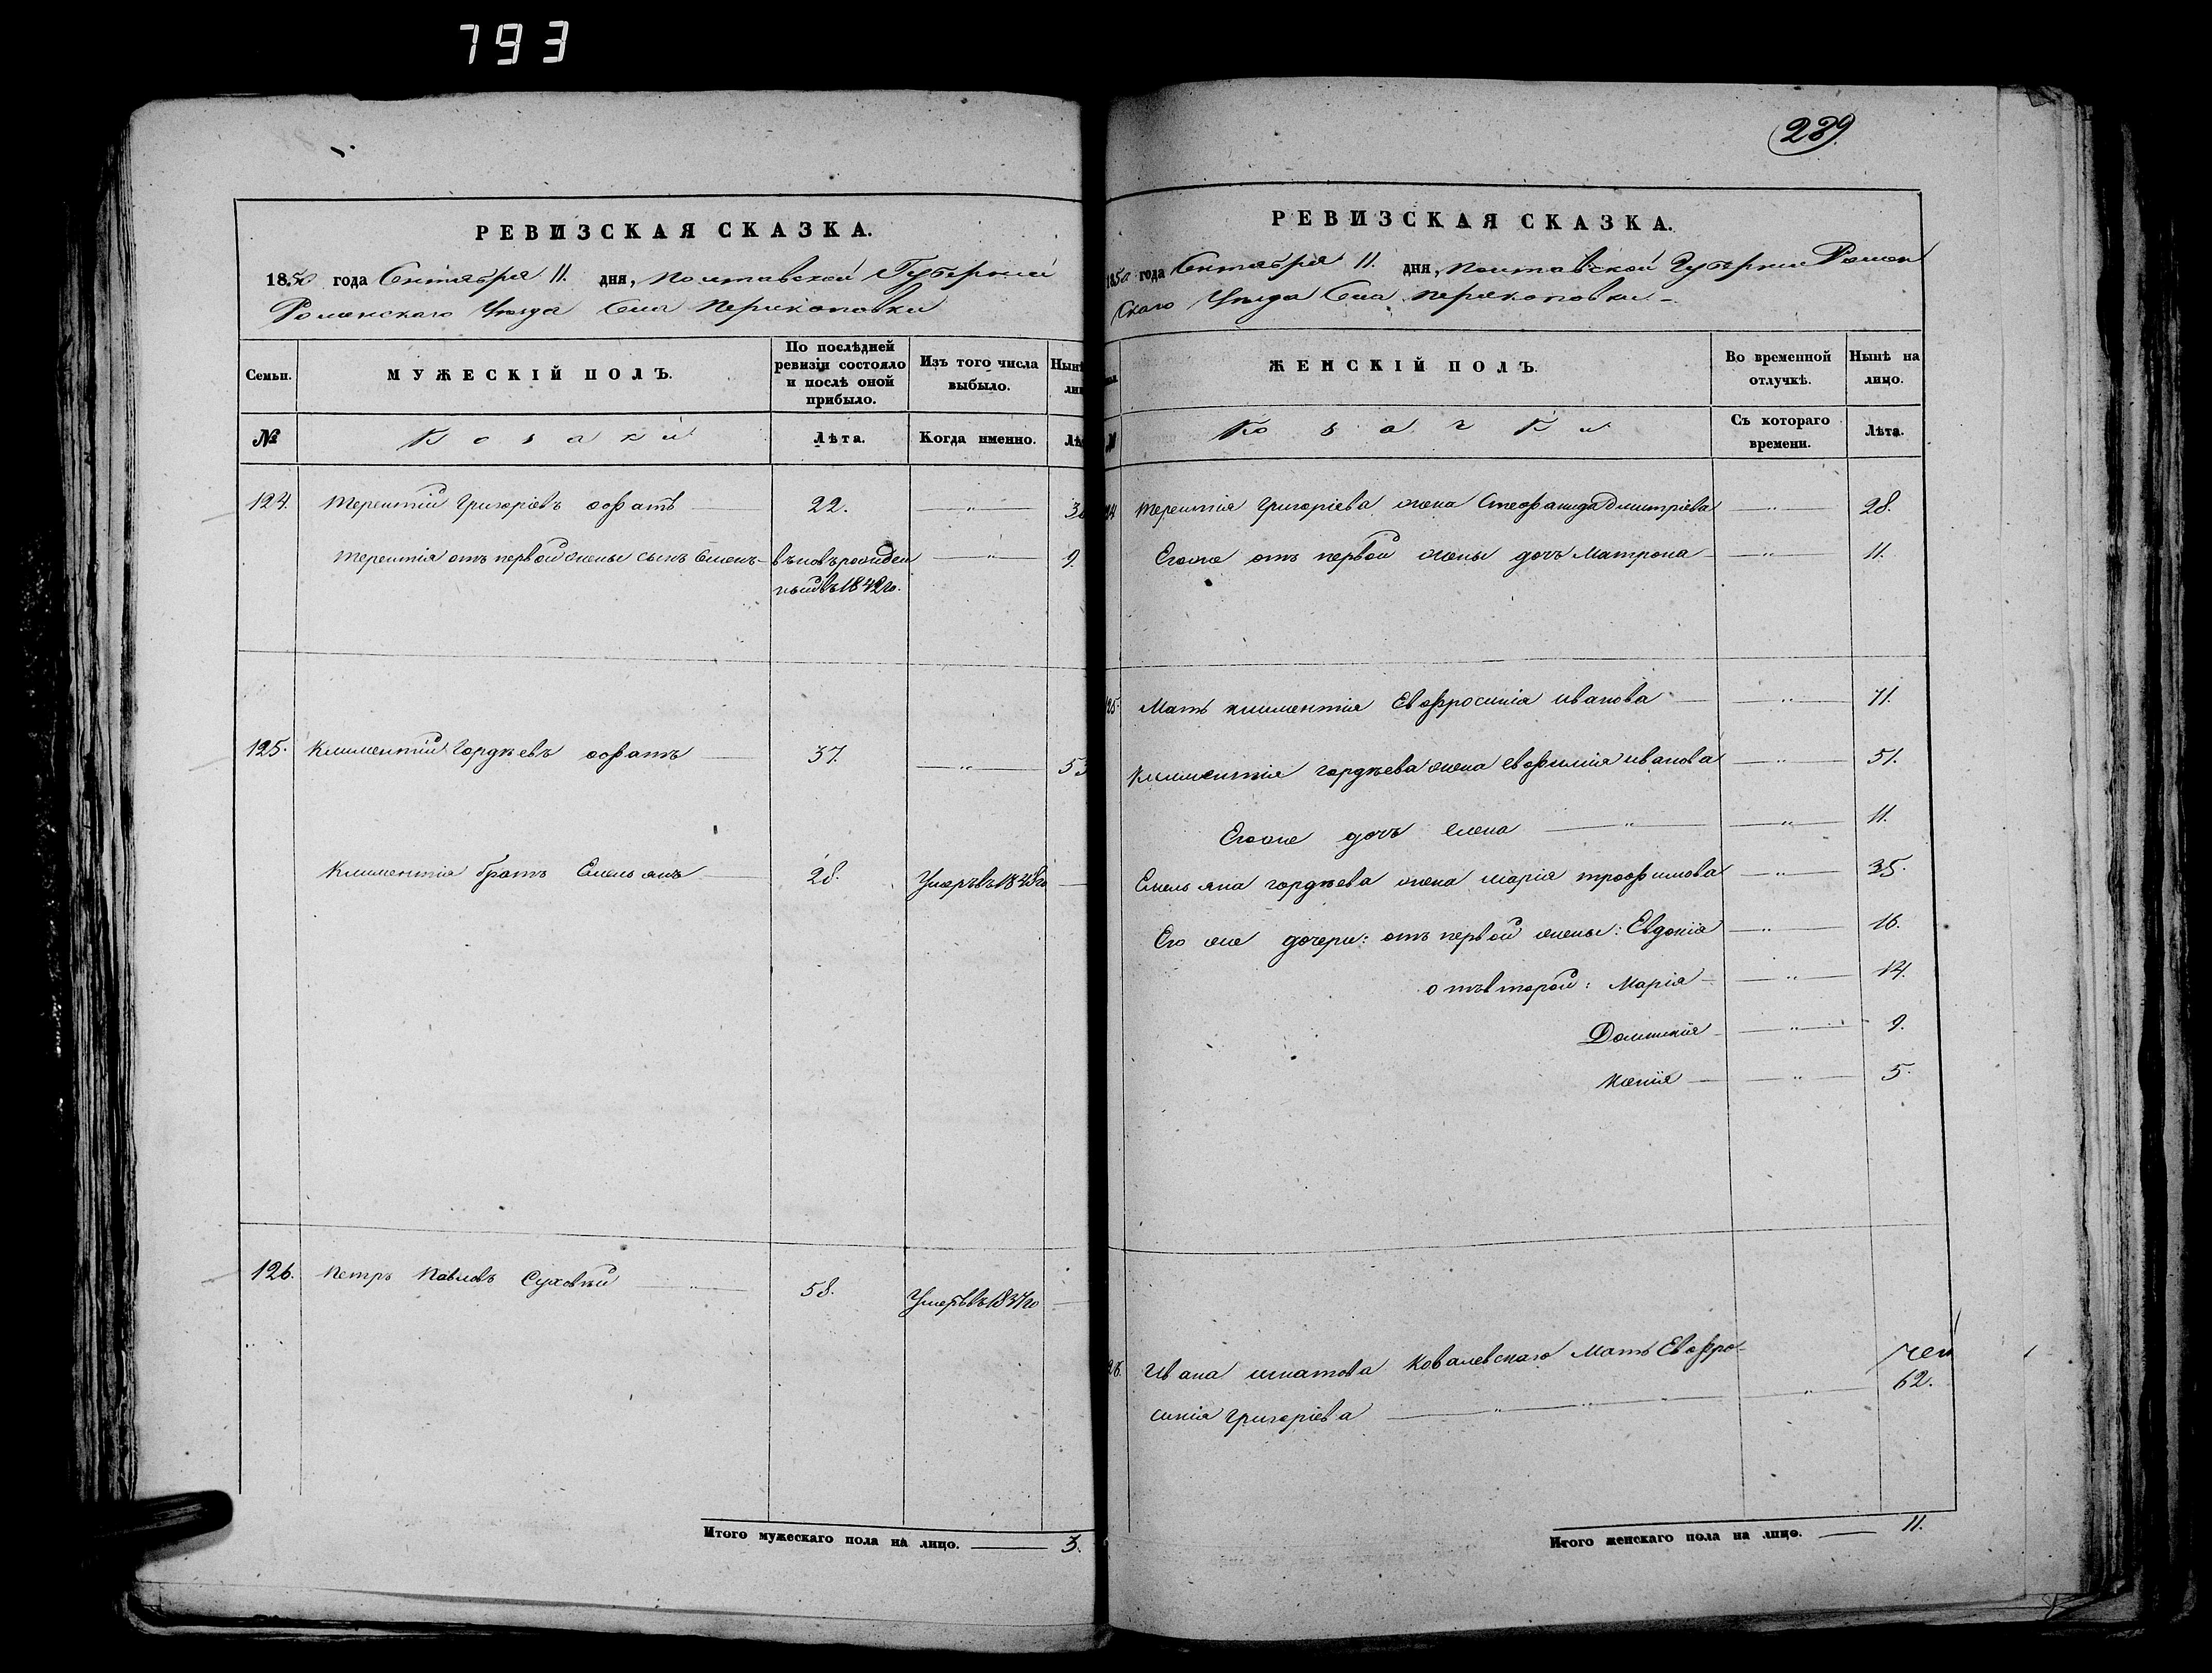 793
РЕВИЗСКАЯ СКАЗКА.
1850 года Сентября 11. дня, Полтавской Губерніи
Роменскаго Уѣзда Села Перекоповки
Семьи.
МУЖЕСКІЙ ПОЛЪ.
По послѣдней ревизіи состояло и послѣ оной прибыло.
Изъ того числа выбыло.
Нынѣ
ли
№
Козаки
Лѣта.
Когда именно.
Лѣ
124. Терентій Григоріевъ 22. — " — 3
Терентія отъ первой жены сынъ Семенъ — вновьрожден — " — 9
ныйвъ1842го.
125. Климентій Гордѣевъ 37. — " — 53
Климентія братъ Емельянъ — 28. Умеръвъ1848го —
126. Петръ Павловъ Суховѣй — 58. Умеръвъ1837го —
Итого мужескаго пола на лицо. — 3.
239
РЕВИЗСКАЯ СКАЗКА.
1850 года Сентября 11. дня, Полтавской Губерніи Ромен
скаго Уѣзда Села Перекоповки —
ЖЕНСКІЙ ПОЛЪ.
Во временной отлучкѣ.
Нынѣ на лицо.
Козачки
Съ котораго времени.
Лѣта.
24 Терентія Григоріева жена Стефанида Дмитріева — " — 28.
Егоже отъ первой жены дочь Матрона — " — 11.
25. Мать Климентія Евфросинія Иванова — " — 71.
Климентія Гордѣева жена Евфимія Иванова — " — 51.
Егоже дочь Елена — " — " — 11.
Емельяна Гордѣева жена Марія Трофимова — " — 35.
Его же дочери: отъ первой жены: Евдокія — " — 16.
отъвторой: Марія — " — 14.
Домникія — " — 9.
— " — 5.
26. Ивана Игнатова Ковалевскаго Мать Евфро-
синія Григоріева — " — " — 62.
Итого женскаго пола на лицо. — 11.